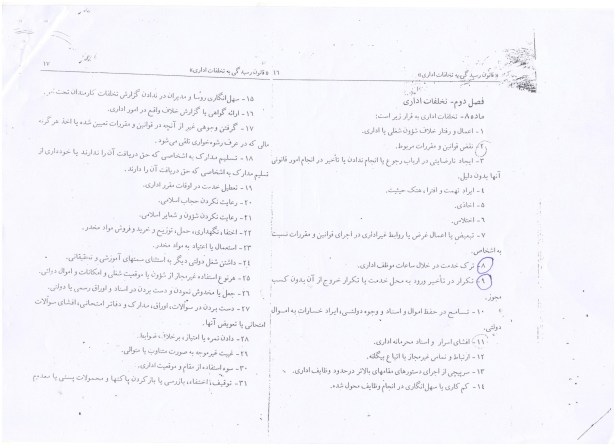 «قانون رسیدگی به تخلفات اداری» ۱۶
فصل دوم- تخلفات اداری
ماده ۸- تخلفات اداری به قرار زیر است:
۱- اعمال و رفتار خلاف شؤون شغلی یا اداری.
۲- نقض قوانین و مقررات مربوط.
۳- ایجاد نارضایتی در ارباب رجوع یا انجام ندادن یا تأخیر در انجام امور قانونی
آنها بدون دلیل.
۴- ایراد تهمت و افترا، هتک حیثیت.
۵- اخاذی.
۶- اختلاس.
۷- تبعیض یا اعمال غرض یا روابط غیراداری در اجرای قوانین و مقررات نسبت
به اشخاص.
۸- ترک خدمت در خلال ساعات موظف اداری.
۹- تکرار در تأخیر ورود به محل خدمت یا تکرار خروج از آن بدون کسب
مجوز.
۱۰- تسامح در حفظ اموال و اسناد و وجوه دولتی، ایراد خسارات به اموال
دولتی.
۱۱- افشای اسرار و اسناد محرمانه اداری.
۱۲- ارتباط و تماس غیرمجاز با اتباع بیگانه.
۱۳- سرپیچی از اجرای دستورهای مقامهای بالاتر در حدود وظایف اداری.
۱۴- کم کاری یا سهل‌انگاری در انجام وظایف محول شده.
«قانون رسیدگی به تخلفات اداری» ۱۷
۱۵- سهل‌انگاری رؤسا و مدیران در ندادن گزارش تخلفات کارمندان تحت
۱۶- ارائه گواهی یا گزارش خلاف واقع در امور اداری.
۱۷- گرفتن وجوهی غیر از آنچه در قوانین و مقررات تعیین شده یا اخذ هرگونه
مالی که در عرف رشوه‌خواری تلقی می‌شود.
۱۸- تسلیم مدارک به اشخاصی که حق دریافت آن را ندارند یا خودداری از
تسلیم مدارک به اشخاصی که حق دریافت آن را دارند.
۱۹- تعطیل خدمت در اوقات مقرر اداری.
۲۰- رعایت نکردن حجاب اسلامی.
۲۱- رعایت نکردن شؤون و شعایر اسلامی.
۲۲- اختفا، نگهداری، حمل، توزیع و خرید و فروش مواد مخدر.
۲۳- استعمال یا اعتیاد به مواد مخدر.
۲۴- داشتن شغل دولتی دیگر به استثنای سمتهای آموزشی و تحقیقاتی.
۲۵- هرنوع استفاده غیرمجاز از شؤون یا موقعیت شغلی و امکانات و اموال دولتی.
۲۶- جعل یا مخدوش نمودن و دست بردن در اسناد و اوراق رسمی یا دولتی.
۲۷- دست بردن در سؤالات، اوراق، مدارک و دفاتر امتحانی، افشای سؤالات
امتحانی یا تعویض آنها.
۲۸- دادن نمره یا امتیاز، برخلاف ضوابط.
۲۹- غیبت غیرموجه به صورت متناوب یا متوالی.
۳۰- سوء استفاده از مقام و موقعیت اداری.
۳۱- توقیف، اختفاء، بازرسی یا باز کردن پاکتها و محمولات پستی یا معدوم